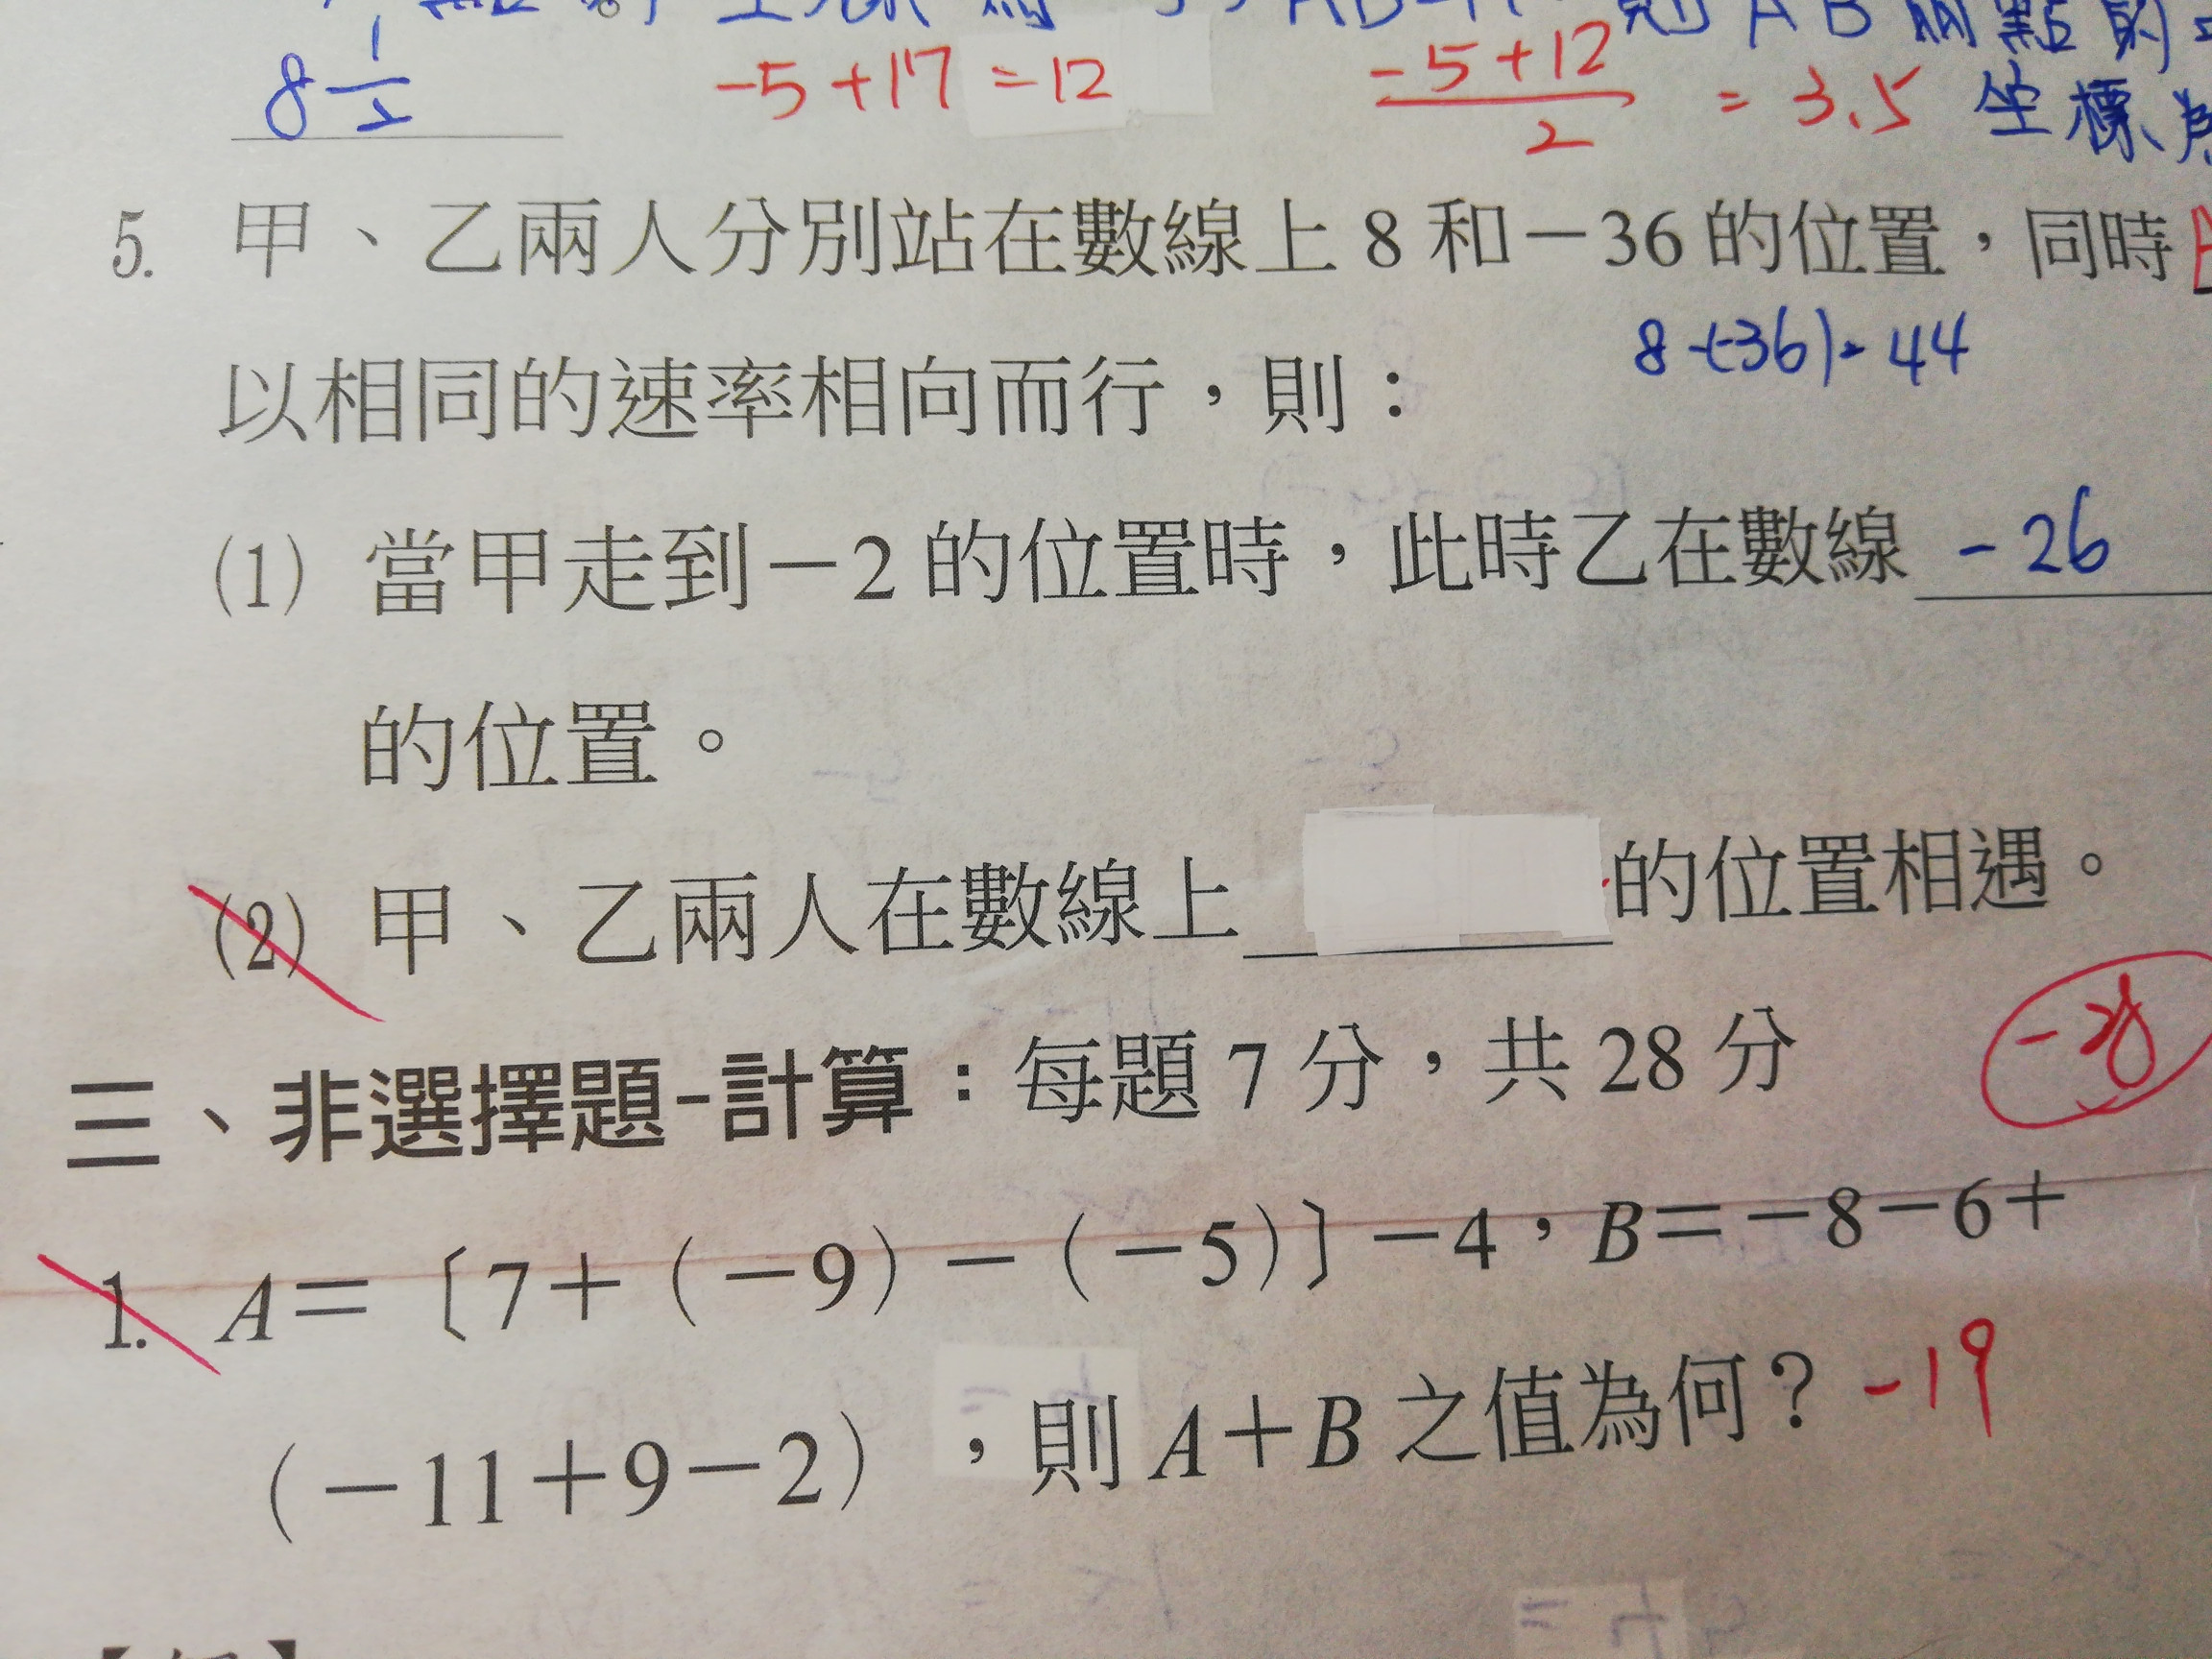 AB兩點的
8 1/2 -5+17=12 -5+12/2 = 3.5 坐標為
5. 甲、乙兩人分別站在數線上 8 和－36 的位置，同時
8-(-36)=44
以相同的速率相向而行，則：
(1) 當甲走到－2 的位置時，此時乙在數線 -26
的位置。
(2) 甲、乙兩人在數線上 的位置相遇。
三、非選擇題-計算：每題 7 分，共 28 分
-28
1. A＝〔7＋（－9）－（－5）〕－4，B＝－8－6＋
（－11＋9－2），則 A＋B 之值為何？ -19